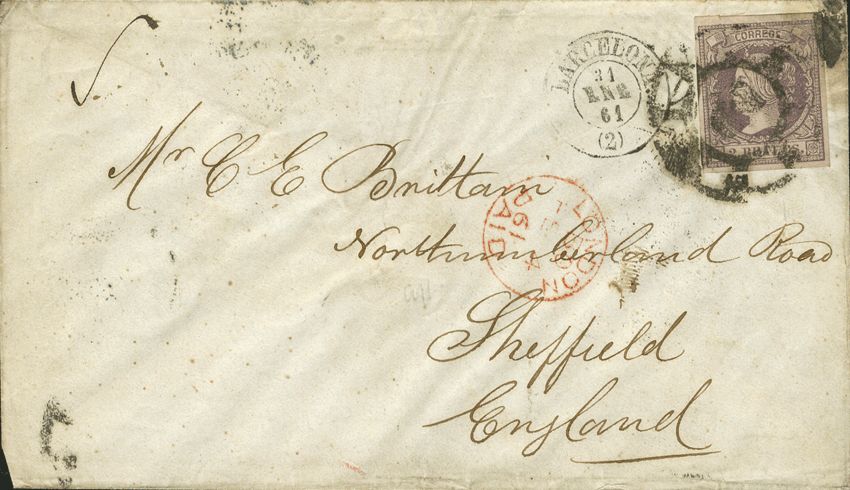 BARCELONA
31
ENE
61
(2)
CORREOS
2 REALES
Mr C E Brittain
Northumberland Road
Sheffield
England
LONDON
4
61
PAID